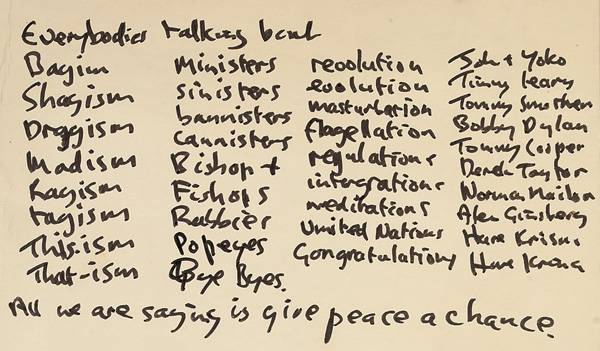 Everybodies talking bout
Bagim
Shagism
Drggism
Madism
Ragism
tagism
This-ism
That-ism
Ministers
sinisters
bannisters
cannisters
Bishop +
Fishops
Rabbier
Popeyes
Bye Byes.
revolution
evolution
masturbation
flagellation
regulations
intergrations
meditations
United Nations
Congratulations
John + Yoko
Timmy Leary
Tommy Smothers
Bobby Dylan
Tommy Cooper
Derek Taylor
Norman Mailer
Alen Ginsberg
Hare Krisna
Hare Krsna
All we are saying is give peace a chance.